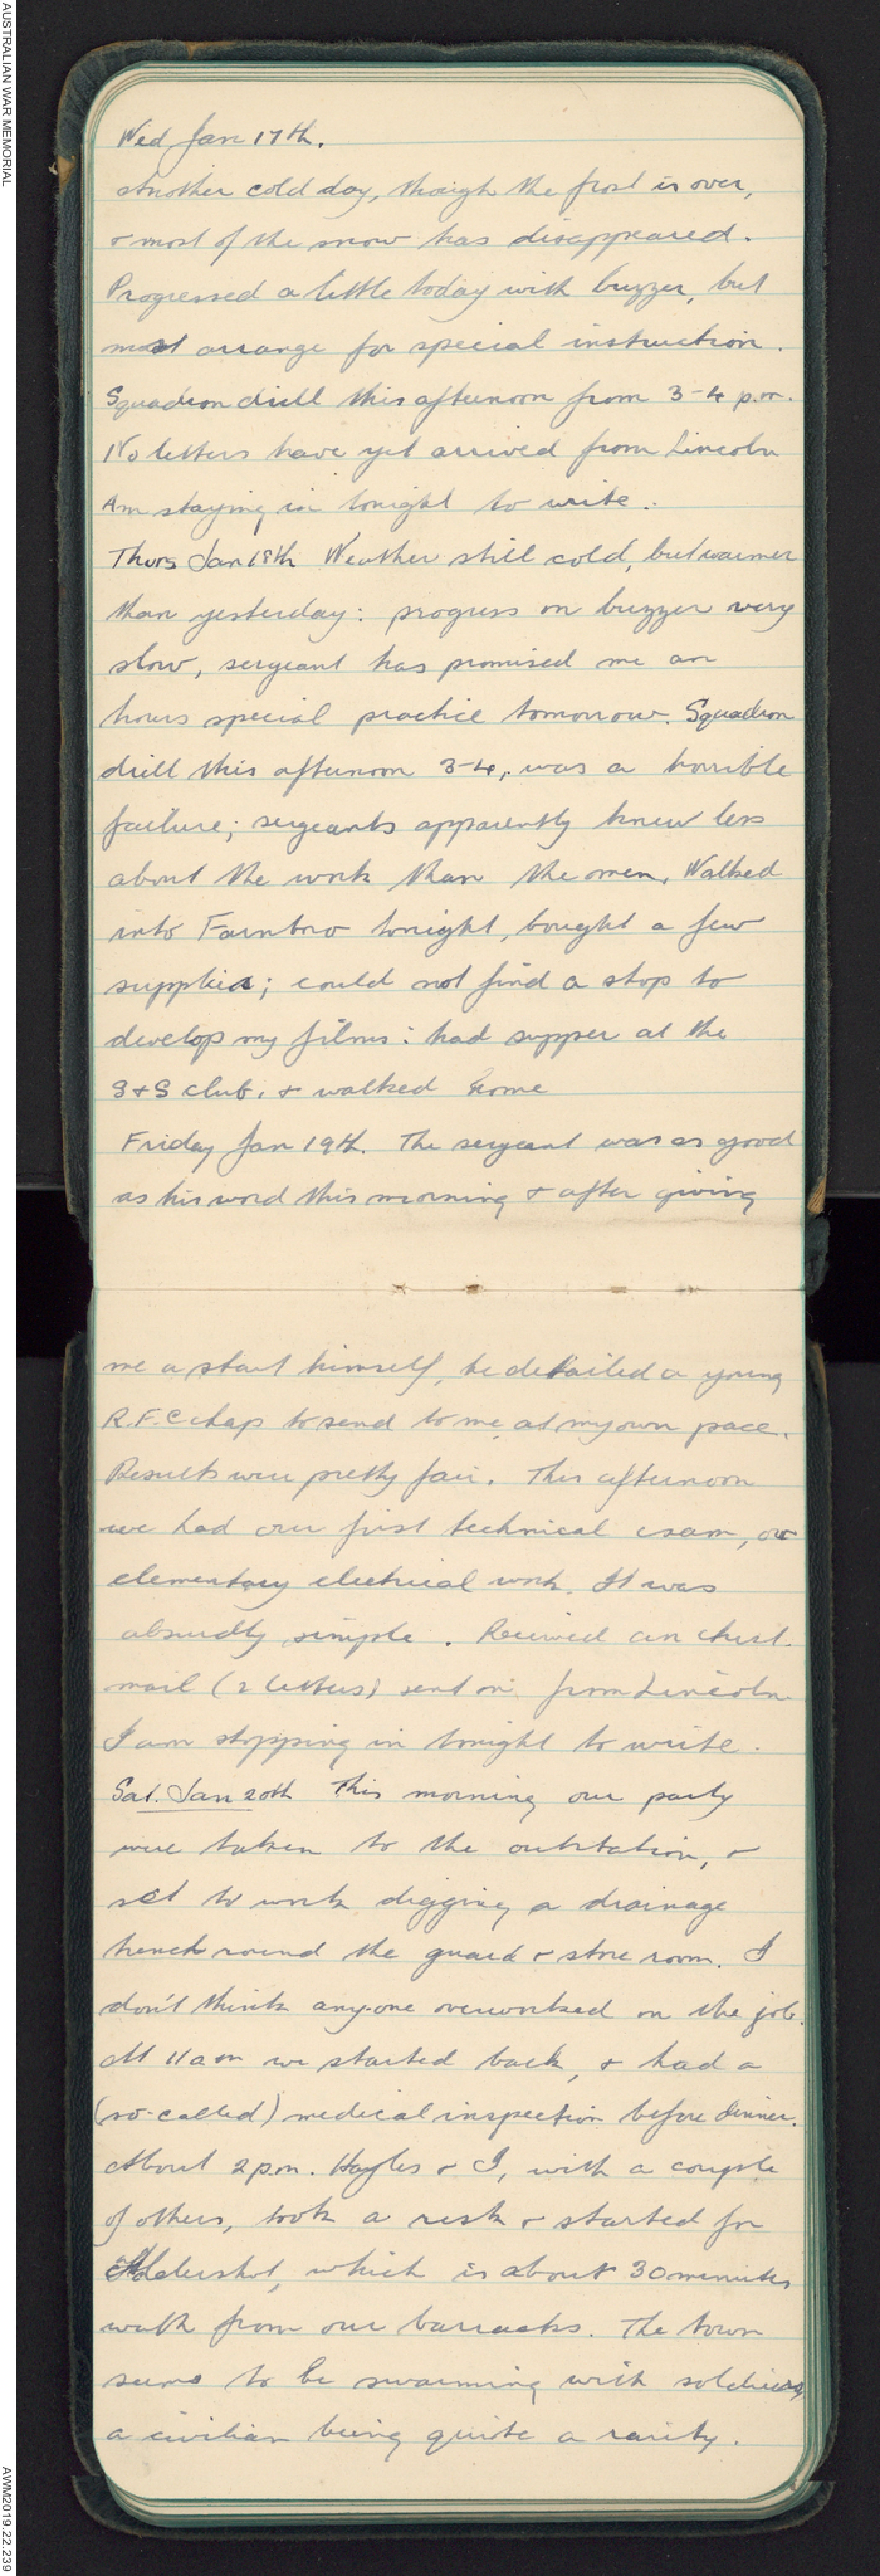 AUSTRALIAN WAR MEMORIAL
Wed Jan 17th.
Another cold day, though the frost is over,
& most of the snow has disappeared.
Progressed a little today with buzzer, but
must arrange for special instruction.
Squadron drill this afternoon from 3-4 p.m.
No letters have yet arrived from Lincoln
Am staying in tonight to write.
Thurs Jan 18th Weather still cold, but warmer
than yesterday: progress on buzzer very
slow, sergeant has promised me an
hours special practice tomorrow. Squadron
drill this afternoon 3-4, was a horrible
failure; sergeants apparently knew less
about the work than the men. Walked
into Farnbro tonight, bought a few
supplies; could not find a shop to
develop my films: had supper at the
S & S club, & walked home
Friday Jan 19th. The sergeant was as good
as his word this morning & after giving
me a start himself, he detailed a young
R.F.C chap to send to me at my own pace.
Results were pretty fair. This afternoon
we had our first technical exam, on
elementary electrical work. It was
absurdly simple. Received an Aust.
mail (2 letters) sent on from Lincoln.
I am stopping in tonight to write.
Sat. Jan 20th This morning our party
were taken to the outstation, &
set to work digging a drainage
trench round the guard & store room. I
don't think any-one overworked on the job.
At 11 am we started back, & had a
(so-called) medical inspection before dinner.
About 2 p.m. Hayles & I, with a couple
of others, took a risk & started for
Aldershot, which is about 30 minutes
walk from our barracks. The town
seems to be swarming with soldiers,
a civilian being quite a rarity.
AWM2019.22.239